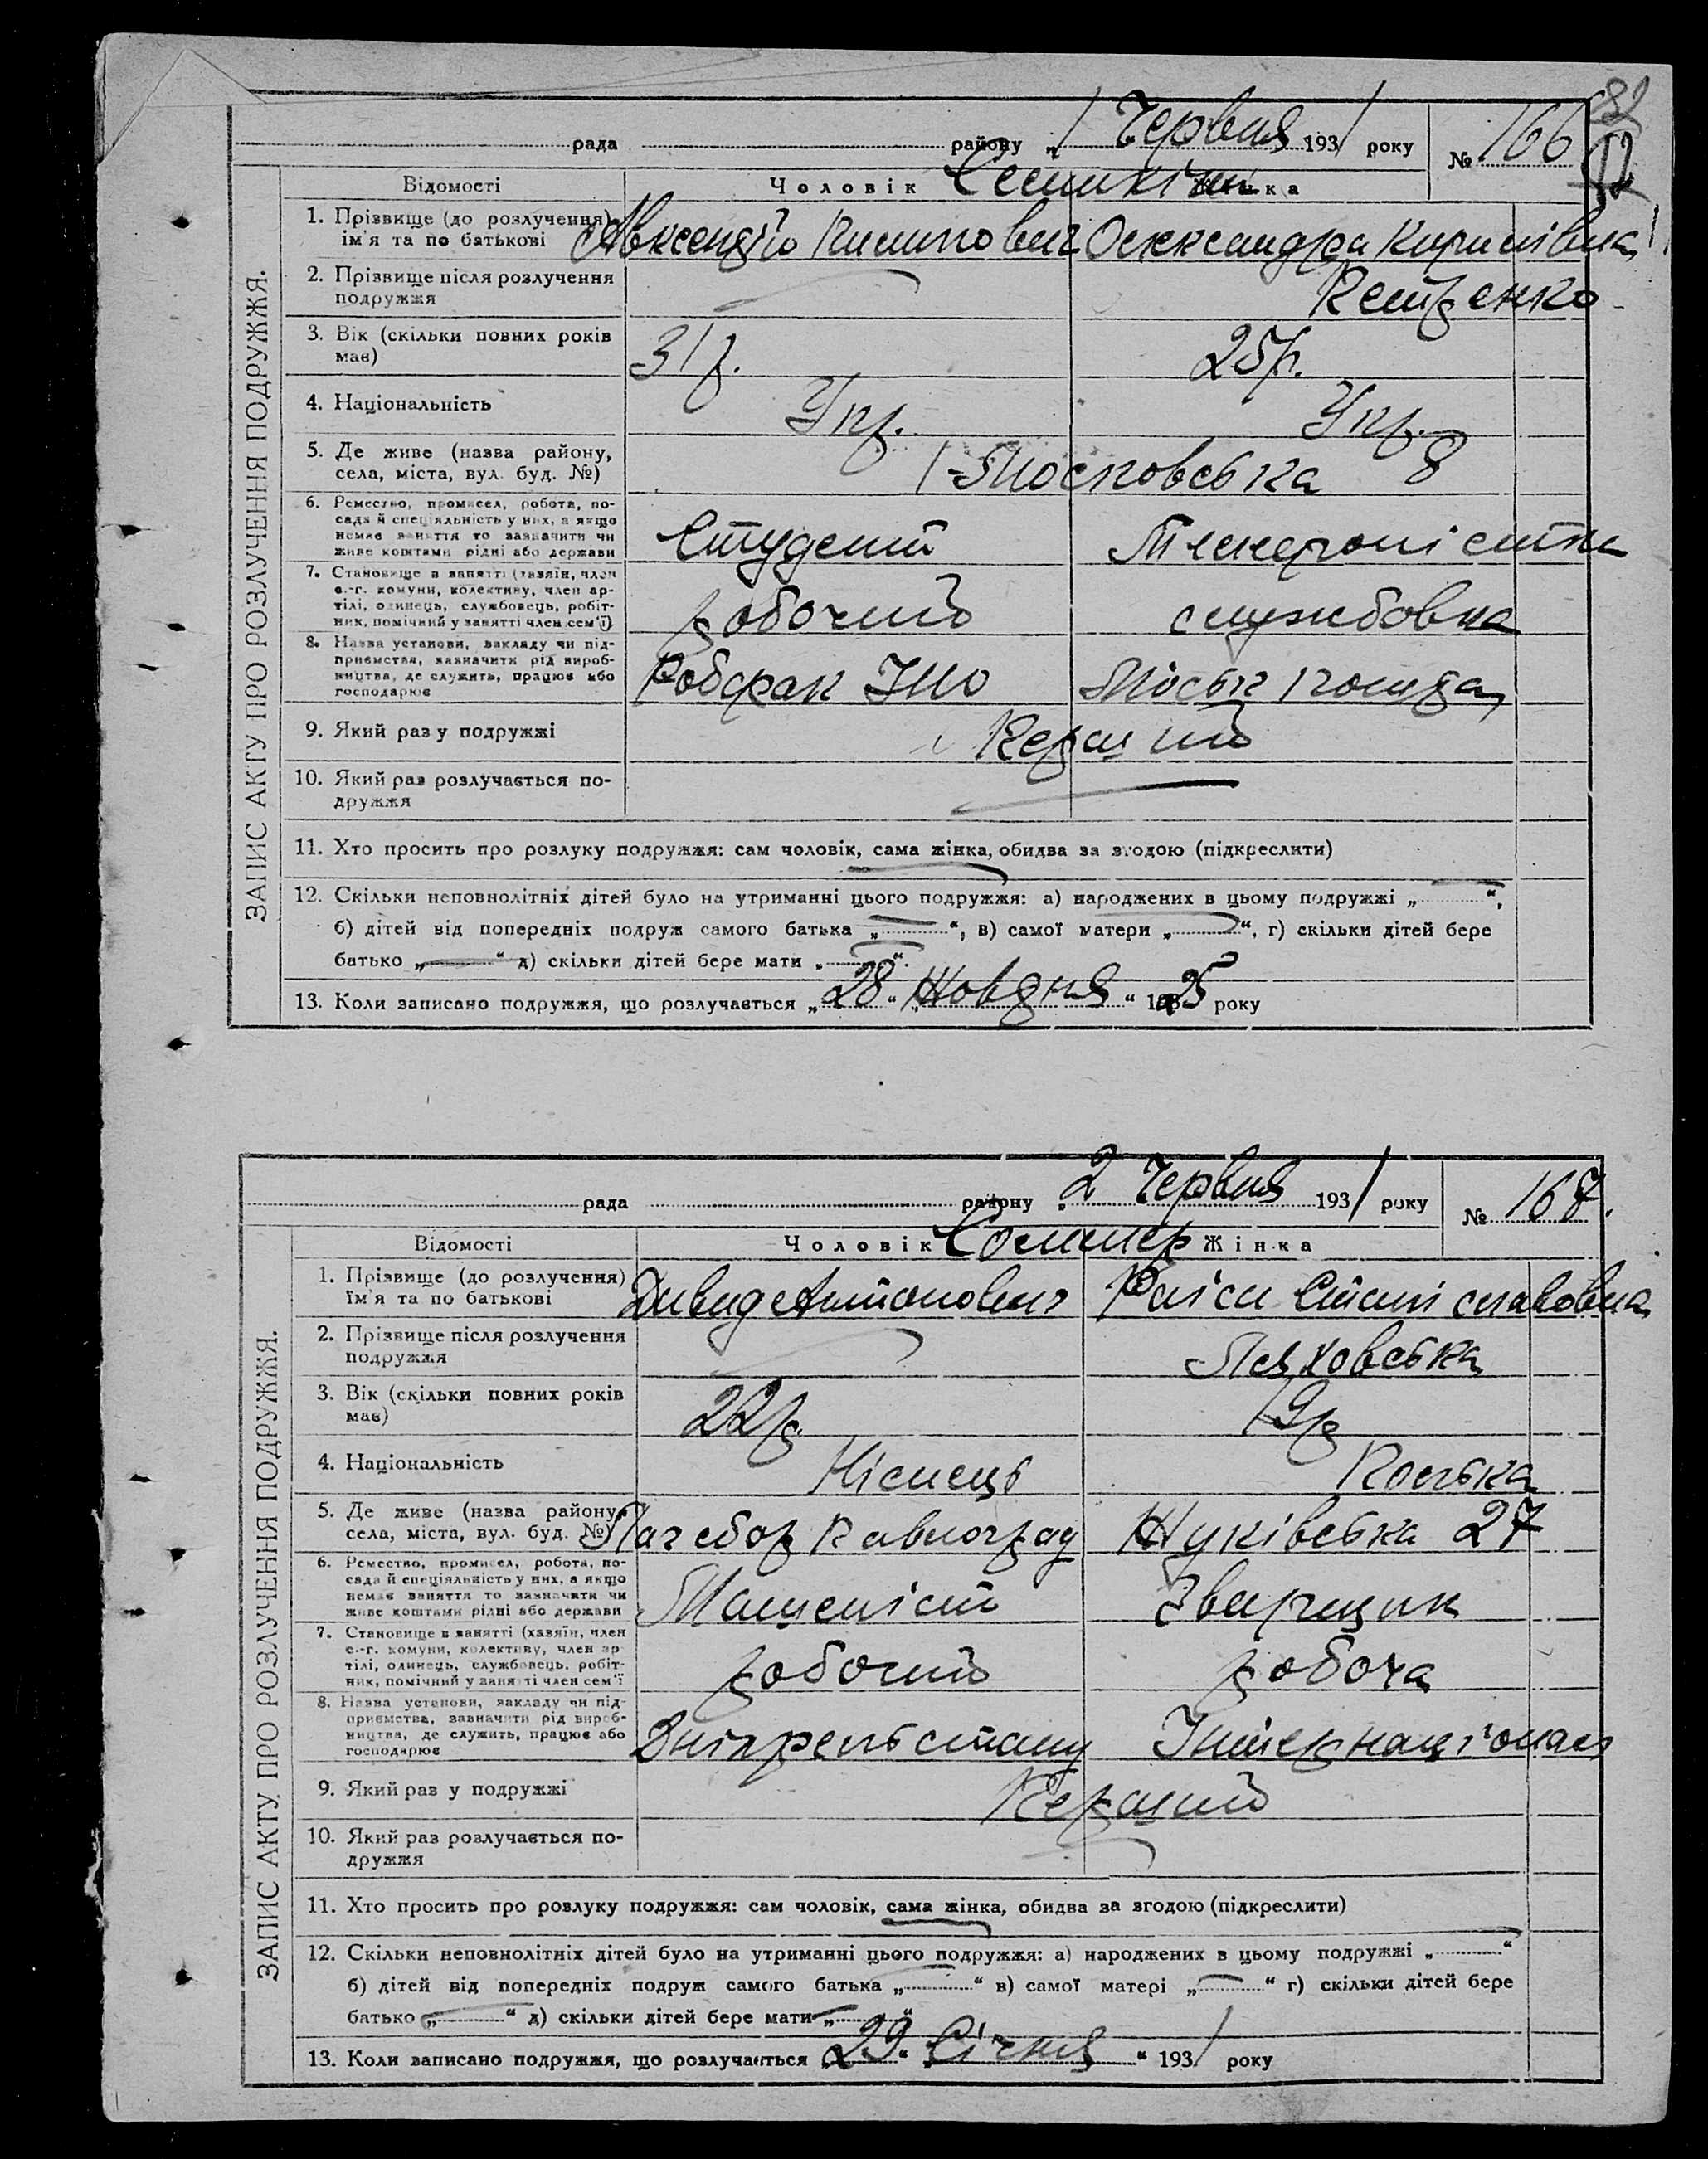 82
рада району „1 Червня 1931 року № 166
12
ЗАПИС АКТУ ПРО РОЗЛУЧЕННЯ ПОДРУЖЖЯ.
Відомості Чоловік Жінка
1. Прізвище (до розлучення) Авксентій Олександра Кирилівна
ім'я та по батькові
2. Прізвище після розлучення
подружжя
3. Вік (скільки повних років 31 р. 25 р.
має)
4. Національність Укр. Укр.
5. Де живе (назва району, Московська 8
села, міста, вул. буд. №)
6. Ремество, промисел, робота, по-
сада й спеціяльність у них, а якщо Студент
немає заняття то зазначити чи
живе коштами рідні або держави
7. Становище в занятті (хазяїн, член
с.-г. комуни, колективу, член ар-
тілі, одинець, службовець, робіт- робочий службовка
ник, помічний у занятті член сем'ї)
8. Назва установи, закладу чи під-
приємства, зазначити рід вироб- Робфак ІНО
ництва, де служить, працює або
господарює
9. Який раз у подружжі Перший
10. Який раз розлучається по-
дружжя
11. Хто просить про розлуку подружжя: сам чоловік, сама жінка, обидва за згодою (підкреслити)
12. Скільки неповнолітніх дітей було на утриманні цього подружжя: а) народжених в цьому подружжі „ “,
б) дітей від попередніх подруж самого батька „ “, в) самої матери „ “, г) скільки дітей бере
батько „ “ д) скільки дітей бере мати „ “.
13. Коли записано подружжя, що розлучається „28“ „Жовтня“ 1925 року
рада району „2 Червня 1931 року № 167.
ЗАПИС АКТУ ПРО РОЗЛУЧЕННЯ ПОДРУЖЖЯ.
Відомості Чоловік Жінка
1. Прізвище (до розлучення) Давид Антонович Раіса Станіславовна
ім'я та по батькові
2. Прізвище після розлучення Ляховська
подружжя
3. Вік (скільки повних років 22 р. 19 р
має)
4. Національність Німець Полька
5. Де живе (назва району, Павлоград Жуківська 27
села, міста, вул. буд. №)
6. Ремество, промисел, робота, по-
сада й спеціяльність у них, а якщо Машиніст Зварщик
немає заняття то зазначити чи
живе коштами рідні або держави
7. Становище в занятті (хазяїн, член
с.-г. комуни, колективу, член ар-
тілі, одинець, службовець, робіт- робочий робоча
ник, помічний у занятті член сем'ї
8. Назва установи, закладу чи під-
приємства, зазначити рід вироб- Інтернаціонал
ництва, де служить, працює або
господарює
9. Який раз у подружжі Перший
10. Який раз розлучається по-
дружжя
11. Хто просить про розлуку подружжя: сам чоловік, сама жінка, обидва за згодою (підкреслити)
12. Скільки неповнолітніх дітей було на утриманні цього подружжя: а) народжених в цьому подружжі „ “
б) дітей від попередніх подруж самого батька „ “ в) самої матері „ “ г) скільки дітей бере
батько „ “ д) скільки дітей бере мати „ “
13. Коли записано подружжя, що розлучається „29“ „Січня“ 1931 року